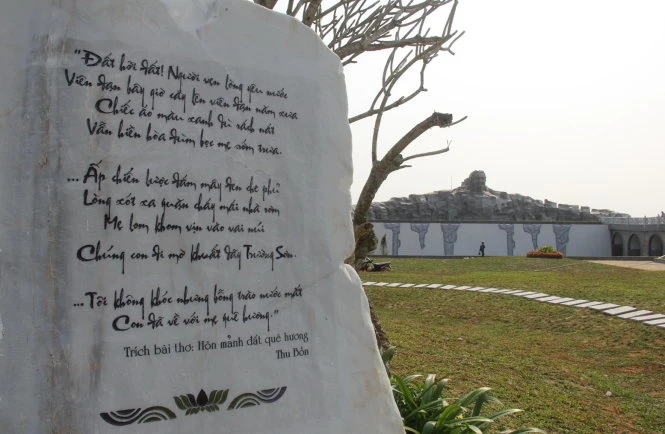 "Đất hỡi đất! Người vẹn lòng yêu nước
Viên đạn bây giờ cấy lên viên đạn năm xưa
Chiếc áo màu xanh dù rách nát
Vẫn hiền hòa đùm bọc mẹ sớm trưa.
... Ấp chiến lược đám mây đen che phủ
Lòng xót xa quặn cháy mái nhà rơm
Mẹ lom khom vịn vào vai núi
Chúng con đi mờ khuất dãy Trường Sơn.
... Tôi không khóc nhưng bỗng trào nước mắt
Con đã về với mẹ quê hương."
Trích bài thơ: Hôn mảnh đất quê hương
Thu Bồn